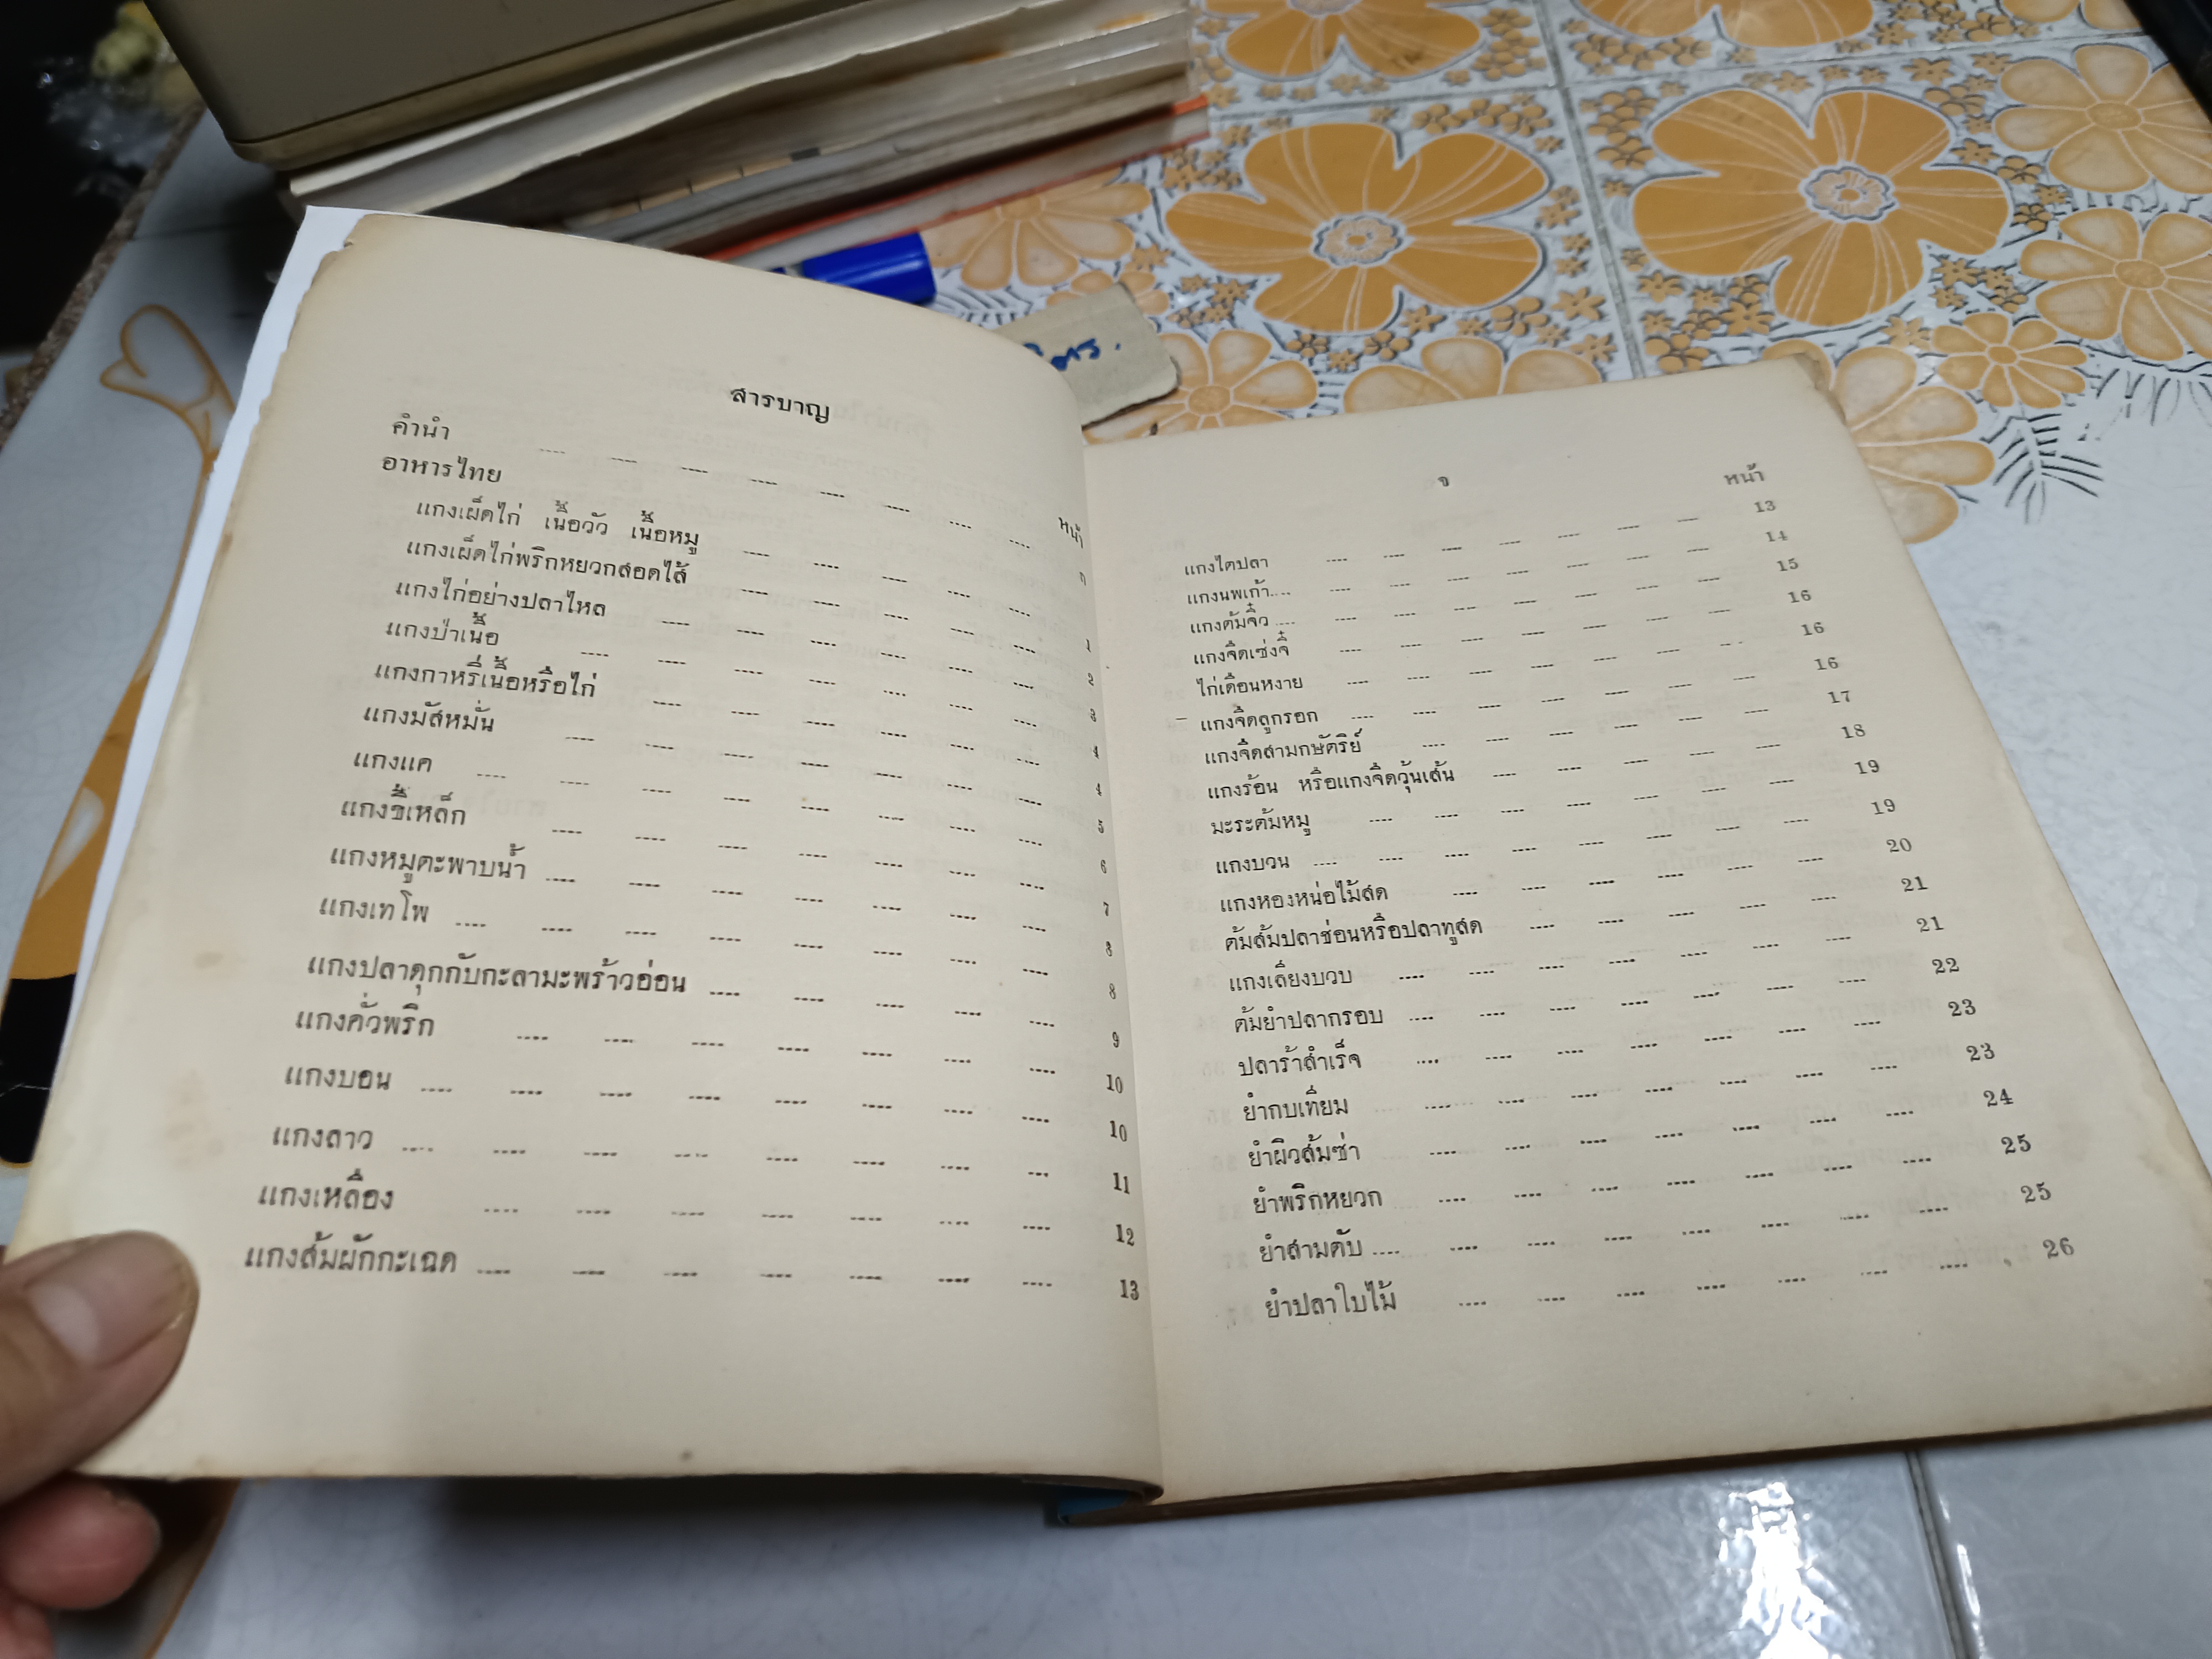 สารบาญ
หน้า
คำนำ .... .... .... .... .... .... .... .... ก
อาหารไทย
แกงเผ็ดไก่ เนื้อวัว เนื้อหมู .... .... .... .... .... 1
แกงเผ็ดไก่พริกหยวกสอดไส้ .... .... .... .... .... 2
แกงไก่อย่างปลาไหล .... .... .... .... .... .... 3
แกงป่าเนื้อ .... .... .... .... .... .... .... 4
แกงกาหรี่เนื้อหรือไก่ .... .... .... .... .... .... 4
แกงมัสหมั่น .... .... .... .... .... .... .... 5
แกงแค .... .... .... .... .... .... .... .... 6
แกงขี้เหล็ก .... .... .... .... .... .... .... 7
แกงหมูตะพาบน้ำ .... .... .... .... .... .... .... 8
แกงเทโพ .... .... .... .... .... .... .... .... 8
แกงปลาดุกกับกะลามะพร้าวอ่อน .... .... .... .... .... 9
แกงคั่วพริก .... .... .... .... .... .... .... 10
แกงบอน .... .... .... .... .... .... .... .... 10
แกงลาว .... .... .... .... .... .... .... .... 11
แกงเหลือง .... .... .... .... .... .... .... .... 12
แกงส้มผักกะเฉด .... .... .... .... .... .... .... .... 13
ข
หน้า
แกงไตปลา .... .... .... .... .... .... .... 13
แกงนพเก้า.... .... .... .... .... .... .... .... 14
แกงต้มจิ๋ว .... .... .... .... .... .... .... .... 15
แกงจืดเซ่งจี๊ .... .... .... .... .... .... .... 16
ไก่เดือนหงาย .... .... .... .... .... .... .... 16
แกงจืดลูกรอก .... .... .... .... .... .... .... 16
แกงจืดสามกษัตริย์ .... .... .... .... .... .... 17
แกงร้อน หรือแกงจืดวุ้นเส้น .... .... .... .... .... 18
มะระต้มหมู .... .... .... .... .... .... .... 19
แกงบวน .... .... .... .... .... .... .... .... 19
แกงหองหน่อไม้สด .... .... .... .... .... .... 20
ต้มส้มปลาช่อนหรือปลาทูสด .... .... .... .... .... 21
แกงเลียงบวบ .... .... .... .... .... .... .... 21
ต้มยำปลากรอบ .... .... .... .... .... .... .... 22
ปลาร้าสำเร็จ .... .... .... .... .... .... .... 23
ยำกบเทียม .... .... .... .... .... .... .... 23
ยำผิวส้มซ่า .... .... .... .... .... .... .... 24
ยำพริกหยวก .... .... .... .... .... .... .... 25
ยำสามดับ .... .... .... .... .... .... .... .... 25
ยำปลาใบไม้ .... .... .... .... .... .... .... 26